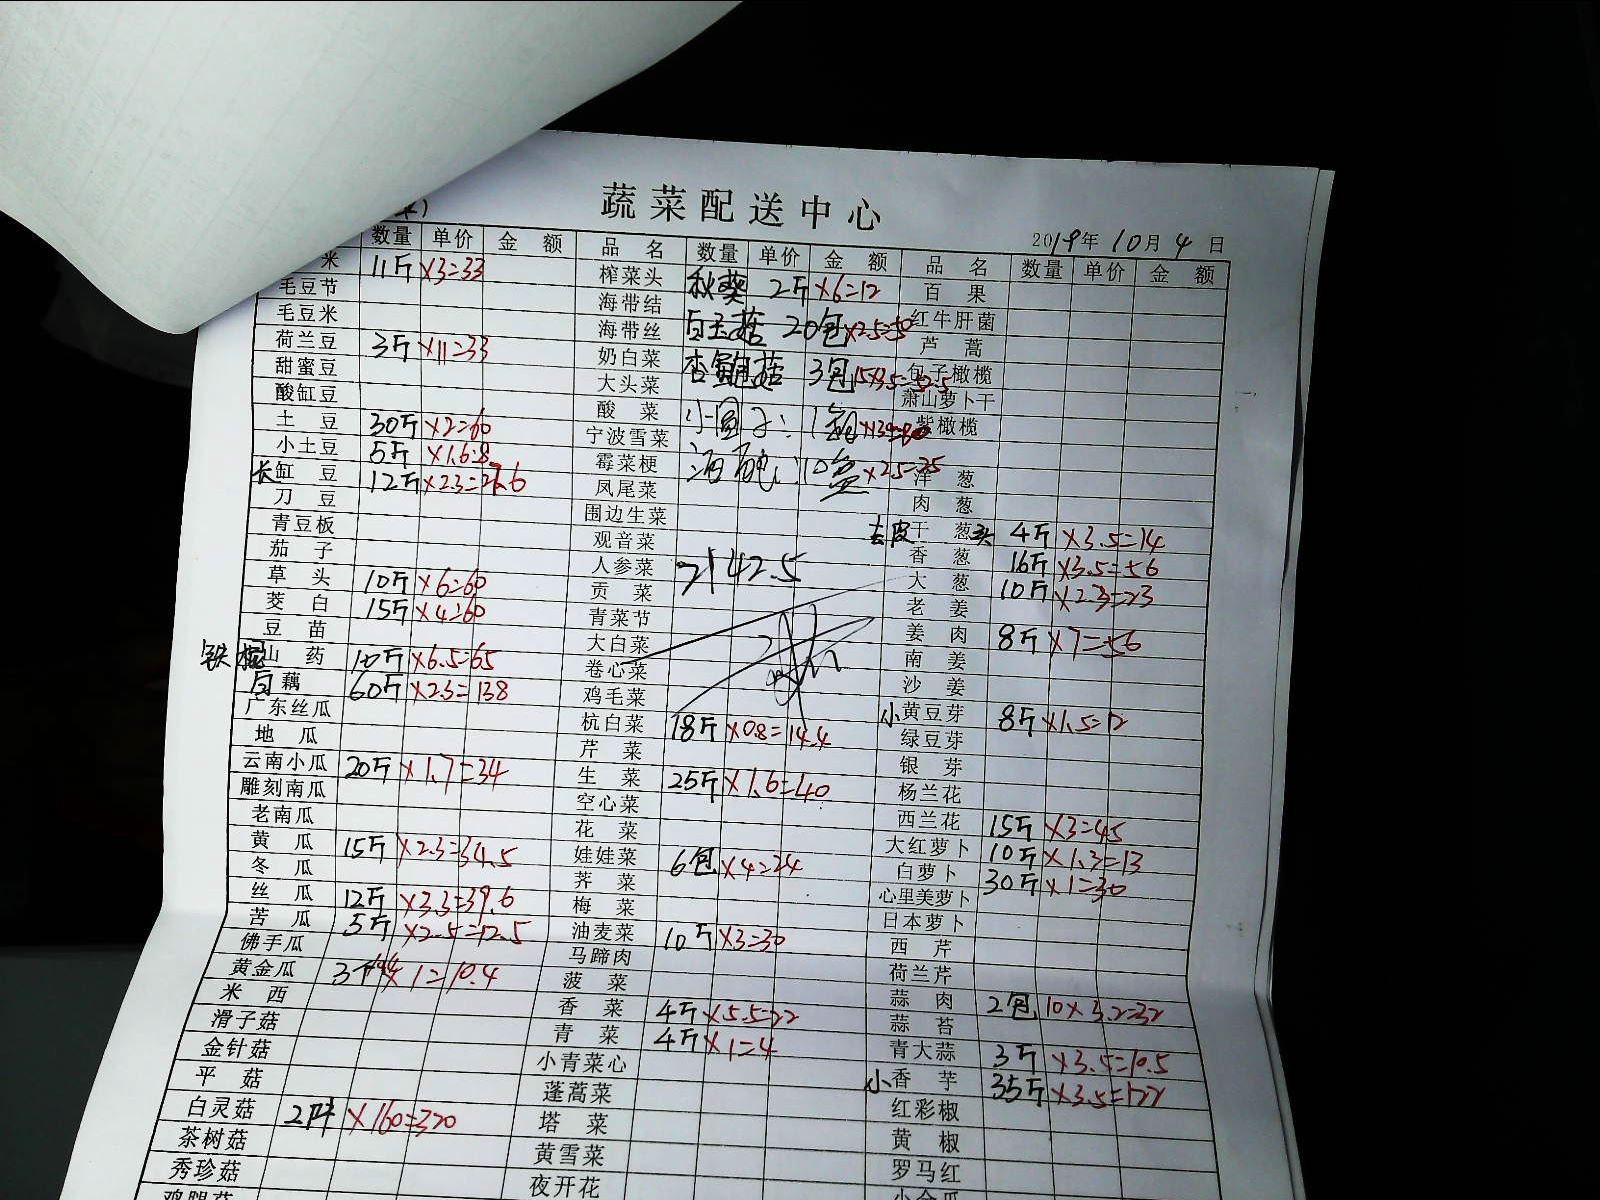 蔬菜配送中心
2019年10月4日
数量 单价 金额 品名 数量 单价 金额 品名 数量 单价 金额
米 11斤 ×3=33 榨菜头 秋葵 2斤 ×6=12 百果
毛豆节 海带结 红牛肝菌
毛豆米 海带丝 白玉菇 20包 ×2.5=50 芦蒿
荷兰豆 3斤 ×11=33 奶白菜 杏鲍菇 3包 包子橄榄
甜蜜豆 大头菜 萧山萝卜干
酸缸豆 酸菜 小圆子: 1箱 紫橄榄
土豆 30斤 ×2=60 宁波雪菜
小土豆 5斤 ×1.6=8 霉菜梗 10盒 ×2.5=25 洋葱
长缸豆 12斤 ×2.3=27.6 凤尾菜 肉葱
刀豆 围边生菜 去皮干葱头 4斤 ×3.5=14
青豆板 观音菜 香葱 16斤 ×3.5=56
茄子 人参菜 2142.5 大葱 10斤 ×2.3=23
草头 10斤 ×6=60 贡菜 老姜
茭白 15斤 ×4=60 青菜节 姜肉 8斤 ×7=56
豆苗 大白菜 南姜
铁棍山药 10斤 ×6.5=65 卷心菜 沙姜
白藕 60斤 ×2.3=138 鸡毛菜 小黄豆芽 8斤 ×1.5=12
广东丝瓜 杭白菜 18斤 ×0.8=14.4 绿豆芽
地瓜 芹菜 银芽
云南小瓜 20斤 ×1.7=34 生菜 25斤 ×1.6=40 杨兰花
雕刻南瓜 空心菜 西兰花 15斤 ×3=45
老南瓜 花菜 大红萝卜 10斤 ×1.3=13
黄瓜 15斤 ×2.3=34.5 娃娃菜 6包 ×4=24 白萝卜 30斤 ×1=30
冬瓜 荠菜 心里美萝卜
丝瓜 12斤 ×3.3=39.6 梅菜 日本萝卜
苦瓜 5斤 ×2.5=12.5 油麦菜 10斤 ×3=30 西芹
佛手瓜 马蹄肉 荷兰芹
黄金瓜 3个 ×1=10.4 菠菜 蒜肉 2包 10×3.2=32
米西 香菜 4斤 ×5.5=22 蒜苔
滑子菇 青菜 4斤 ×1=4 青大蒜 3斤 ×3.5=10.5
金针菇 小青菜心 小香芋 35斤 ×3.5=122
平菇 蓬蒿菜 红彩椒
白灵菇 ×160=320 塔菜 黄椒
茶树菇 黄雪菜 罗马红
秀珍菇 夜开花